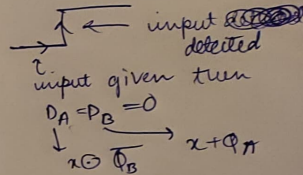 input
detected
τ
input given then
D_A = D_B = 0
x ⊙ \overline{Q_B} x + Q_A